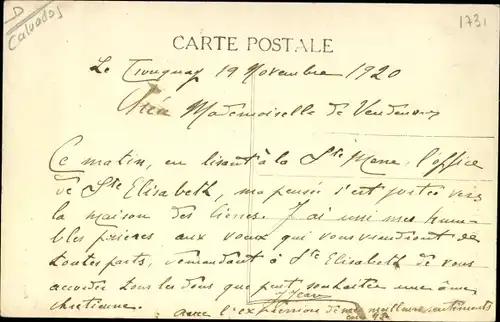 D
Calvados
1731
CARTE POSTALE
Le Tronquay 19 Novembre 1920
Mademoiselle de Vendeuvre
Ce matin, en lisant à la Ste Messe l'office
de Ste Elisabeth, ma pensée s'est portée vers
la maison des liens. J'ai uni mes hum-
bles prières aux vœux qui vous viendront de
toutes parts, demandant à Ste Elisabeth de vous
accorder tous les dons que peut souhaiter une âme
chrétienne.
avec l'expression de mes meilleurs sentiments